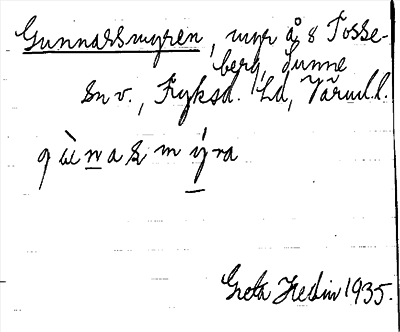 Gunnarsmyren, myr å 8 Tosse-
berg, Sunne
sn v., Fryksd. hd, Värml. l.
gùnasmýra
Greta Hedin 1935.